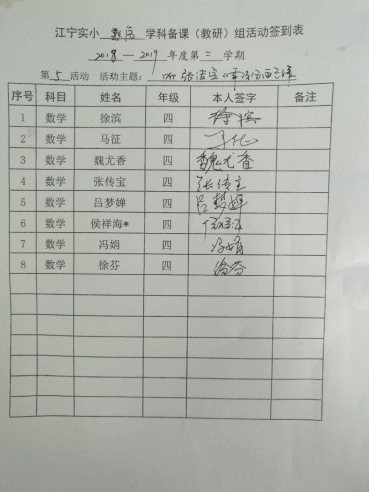 江宁实小 数学 学科备课（教研）组活动签到表
2018 — 2019 年度第二 学期
第 5 活动 活动主题：
序号 科目 姓名 年级 本人签字 备注
1 数学 徐滨 四 徐滨
2 数学 马征 四
3 数学 魏尤香 四 魏尤香
4 数学 张传宝 四 张传宝
5 数学 吕梦婵 四 吕梦婵
6 数学 侯祥海* 四
7 数学 冯娟 四 冯娟
8 数学 徐芬 四 徐芬